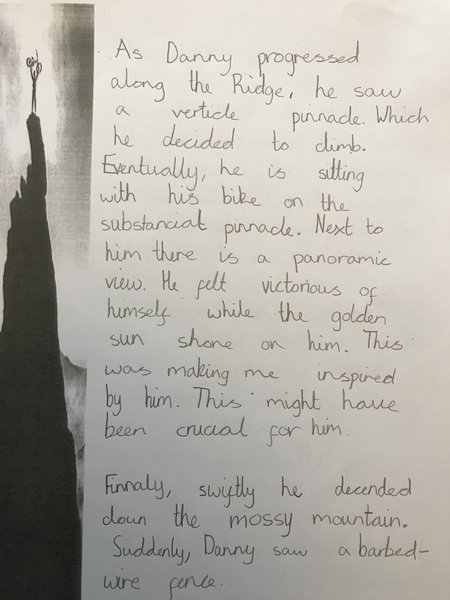 As Danny progressed
along the Ridge, he saw
a verticle pinnacle. Which
he decided to climb.
Eventually, he is sitting
with his bike on the
substancial pinnacle. Next to
him there is a panoramic
view. He felt victorious of
himself while the golden
sun shone on him. This
was making me inspired
by him. This might have
been crucial for him.
Finnaly, swiftly he decended
down the mossy mountain.
Suddenly, Danny saw a barbed-
wire fence.